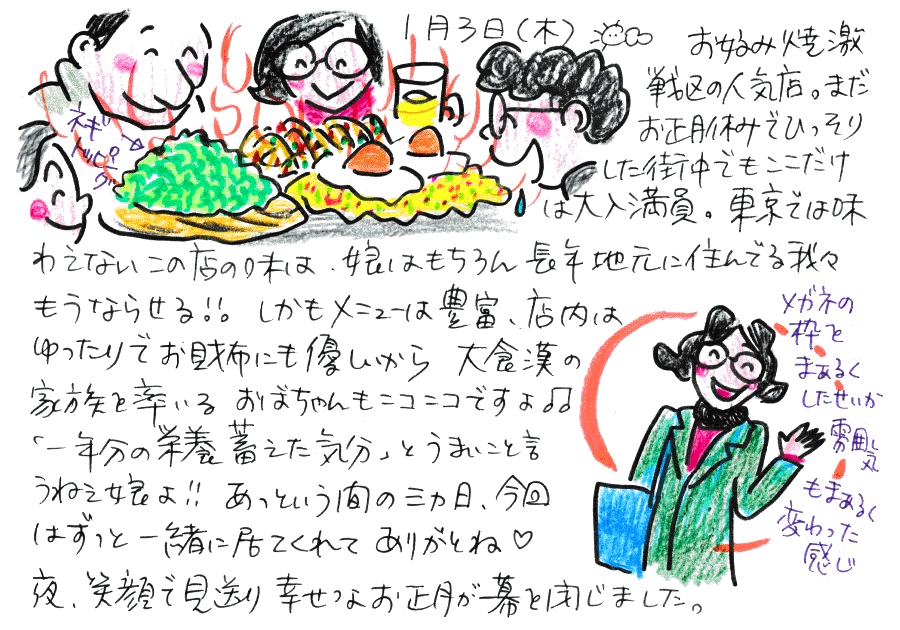 1月3日(木)
お好み焼激
戦区の人気店。まだ
お正月休みでひっそり
した街中でもここだけ
は大入満員。東京では味
わえないこの店の味は、娘はもちろん長年地元に住んでる我々
もうならせる!! しかもメニューは豊富、店内は
ゆったりでお財布にも優しいから 大食漢の
家族を率いる おばちゃんもニコニコですよ♫
「一年分の栄養蓄えた気分」とうまいこと言
うねえ娘よ!! あっという間の三カ日、今回
はずっと一緒に居てくれて ありがとね♡
夜、笑顔で見送り 幸せなお正月が幕を閉じました。
ネギ
トッピ
ング
メガネの
枠を
まぁるく
したせいか
雰囲
気
もまぁるく
変わった
感じ